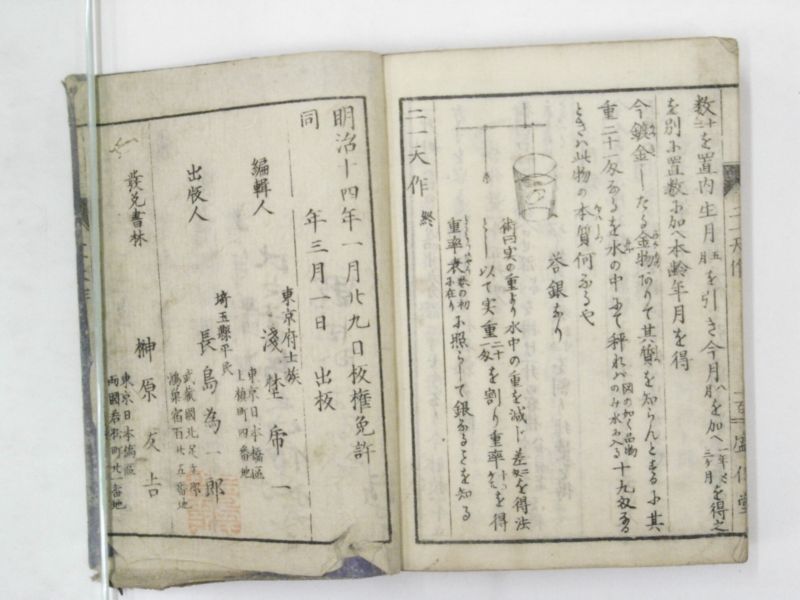 数二十を置内生月五月を引き今月八月を加へ一年ト三ケ月を得之
を別に置数に加へ本齢年月を得
今鍍金したる金物ありて其質を知らんとするに其
重二十匁なるを水の中にて秤れバ図の如く品物のみ水に入る十九匁なる
ときハ此物の本質何なるや
答銀なり
術曰実の重より水中の重を減じ差を得法
とし以て実重二十匁を割り重率を得
重率表に照らして銀なることを知る
二一天作 終
二一天作
明治十四年一月廿九日板権免許
同 年三月一日 出板
編輯人
東京府士族
東京日本橋區
上槇町四番地
出版人
埼玉縣平民
長島為一郎
武蔵國北足立郡
鴻巣宿百廿五番地
發兌書林
榊原友吉
東京日本橋區
両國若松町廿一番地